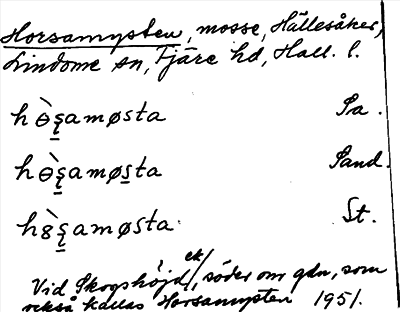 Horsamysten, mosse, Hällesåker,
Lindome sn, Fjäre hd, Hall. l.
hɵ̀ʂamøsta Sa.
hɵ̀ʂamøsta Sand.
hȣ̀ʂamøsta St.
Vid Skogshöjd, söder om gdn, som
också kallas Horsamysten 1951.